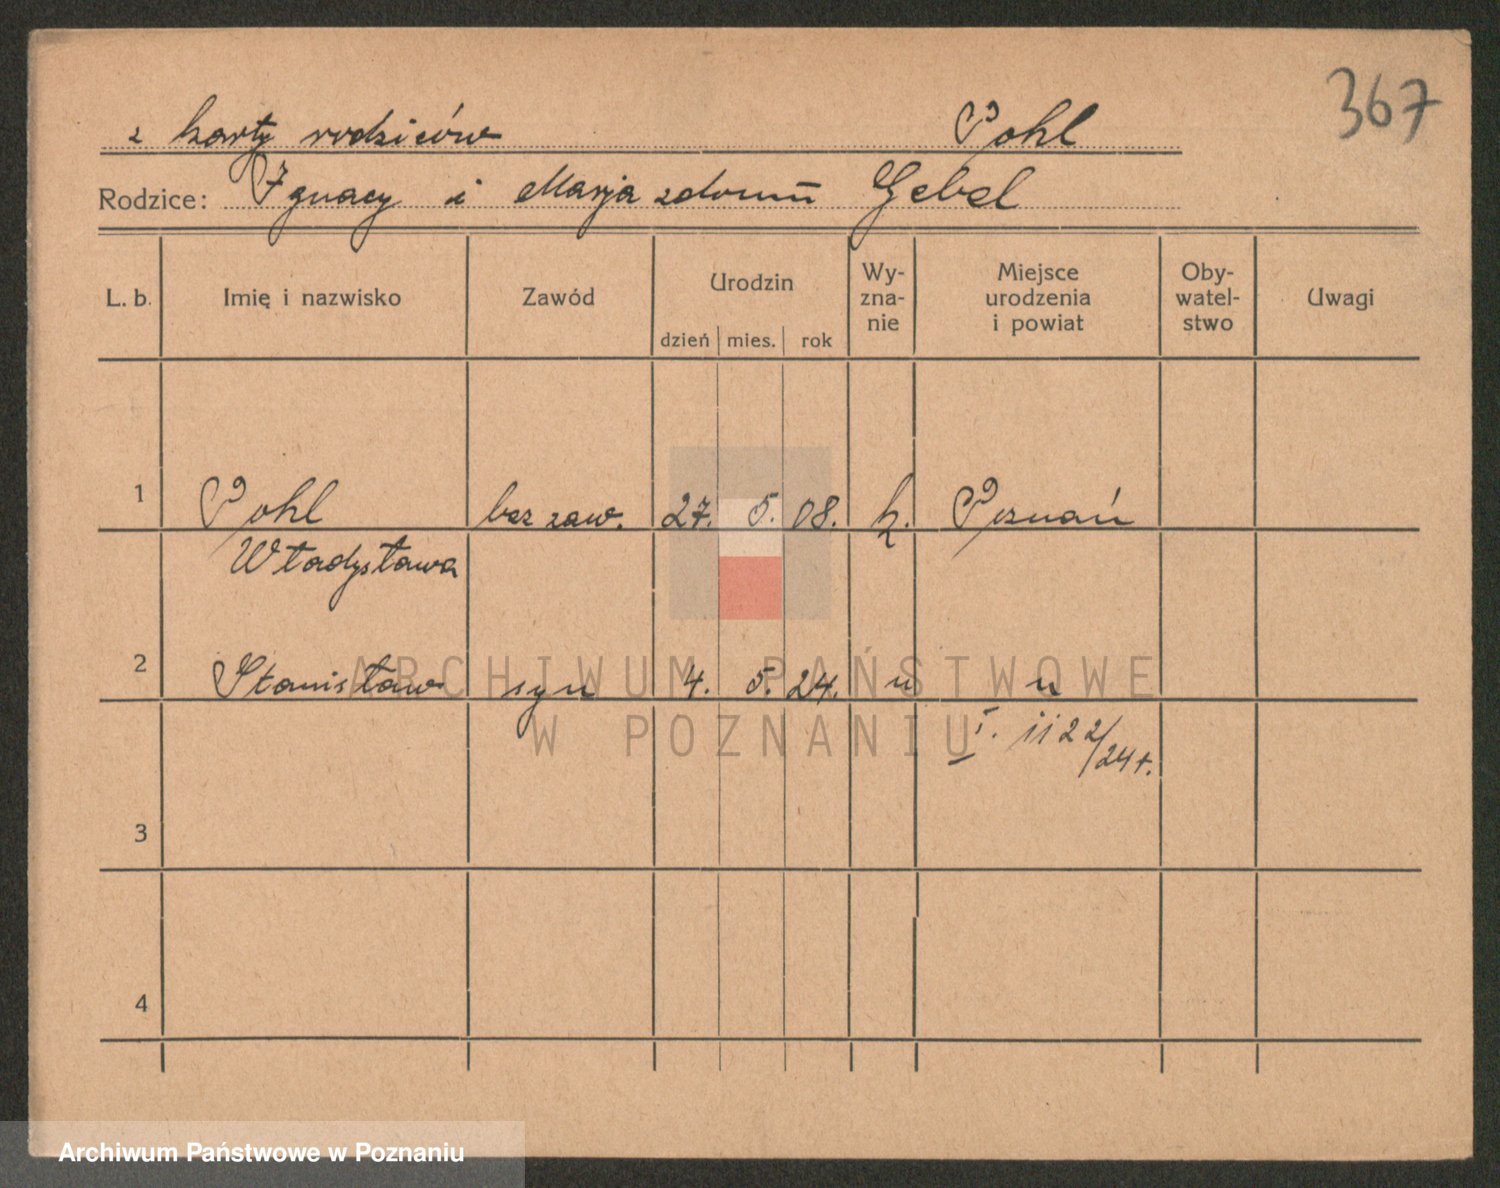 367
z karty rodziców Pohl
Rodzice: Ignacy i Marja zdomu Gebel
L. b. Imię i nazwisko Zawód Urodzin dzień mies. rok Wy-zna-nie Miejsce urodzenia i powiat Oby-watel-stwo Uwagi
1 Pohl bez zaw. 27. 5. 08. k. Poznań
Władysława
2 Stanisław syn 4. 5. 24. " "
I. 1122/24 r.
3
4
ARCHIWUM PAŃSTWOWE
W POZNANIU
Archiwum Państwowe w Poznaniu